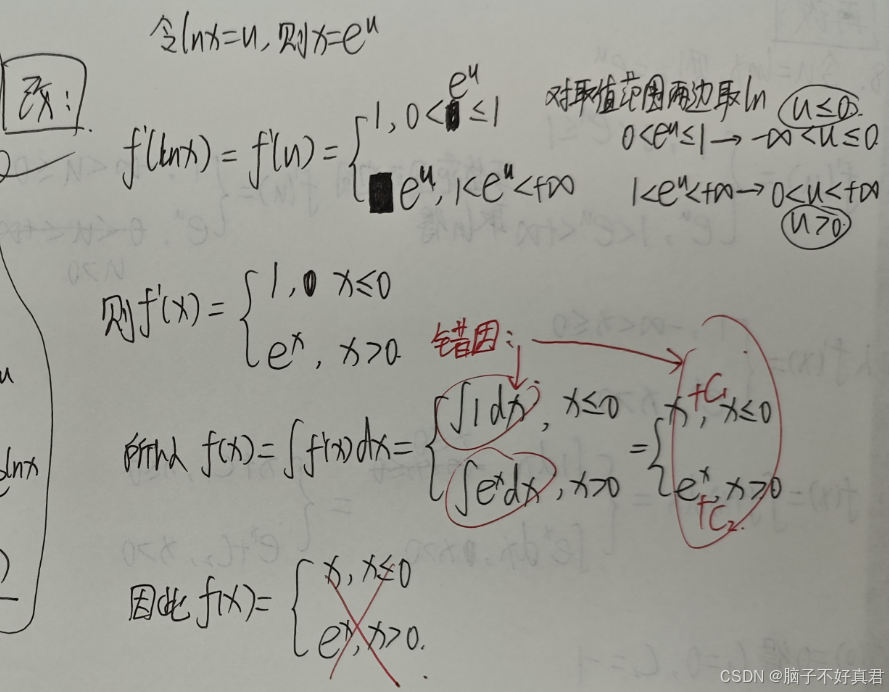 令lnx=u,则x=eᵘ
改:
f'(lnx)=f'(u)={1, 0<eᵘ≤1
eᵘ, 1<eᵘ<+∞
对取值范围两边取ln
u≤0.
0<eᵘ≤1→-∞<u≤0.
1<eᵘ<+∞→0<u<+∞
u>0.
则f'(x)={1, x≤0
eˣ, x>0.
错因:
所以f(x)=∫f'(x)dx={∫1dx, x≤0
∫eˣdx, x>0
={x+C₁, x≤0
eˣ+C₂, x>0
因此f(x)={x, x≤0
eˣ, x>0.
u
lnx
CSDN @脑子不好真君